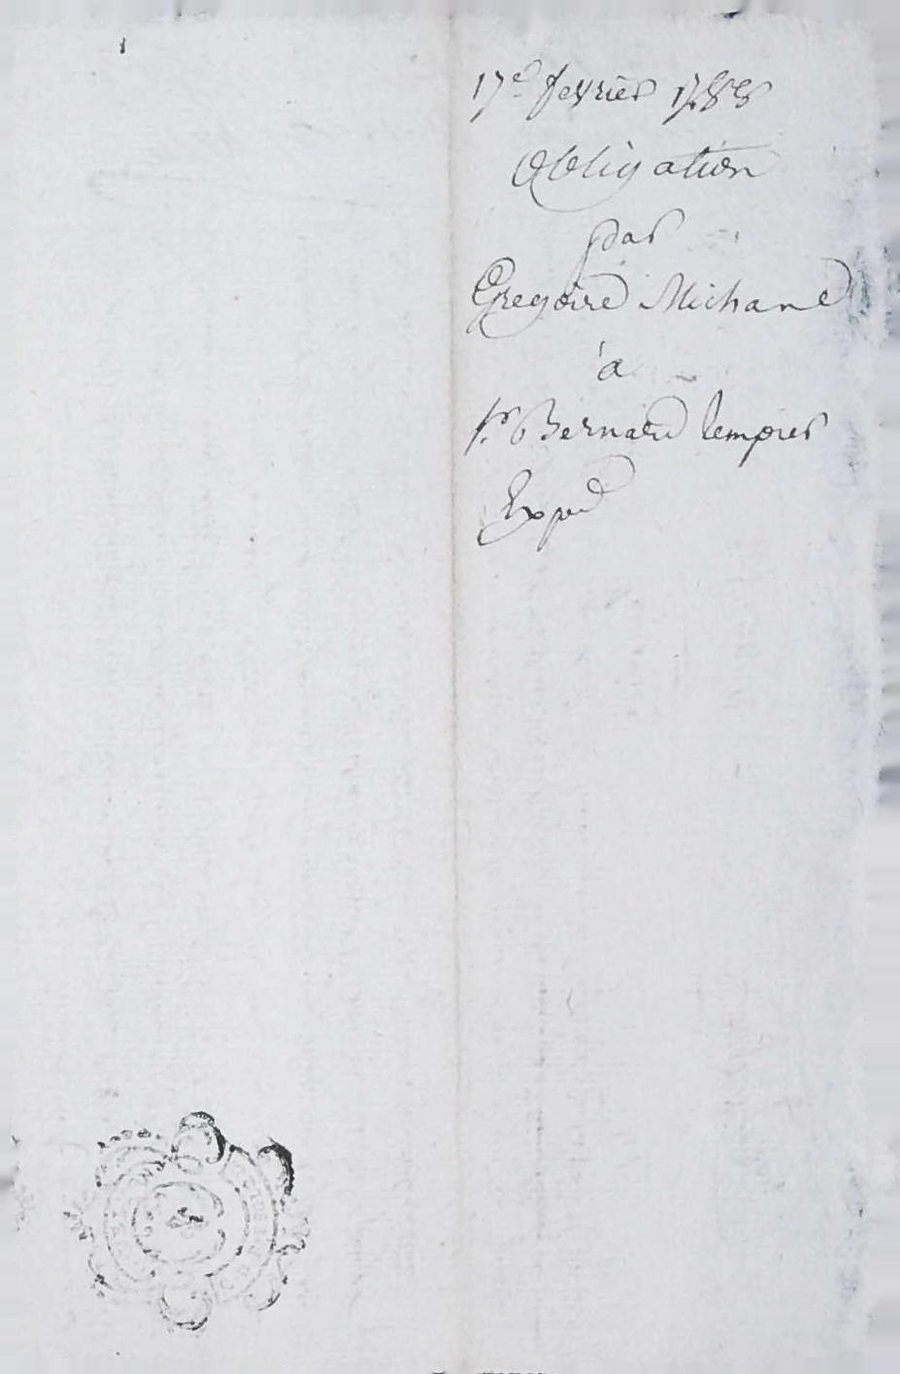 17e fevrier 1788
Obligation
par
Gregoire Michaud
à
Sr Bernard lempier
Exped